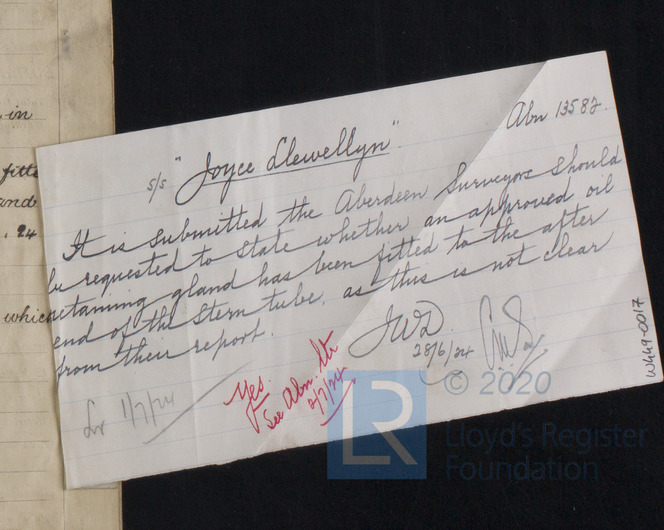 in
fitte
and
. 24
which
Abn 13582.
s/s "Joyce Llewellyn".
It is submitted the Aberdeen Surveyors should
be requested to state whether an approved oil
retaining gland has been fitted to the after
end of the stern tube, as this is not clear
from their report.
JWD
28/6/24
Lr 1/7/24
Yes.
See Abn. ltr
2/7/24
W449-0017
© 2020
LR
Lloyd's Register
Foundation